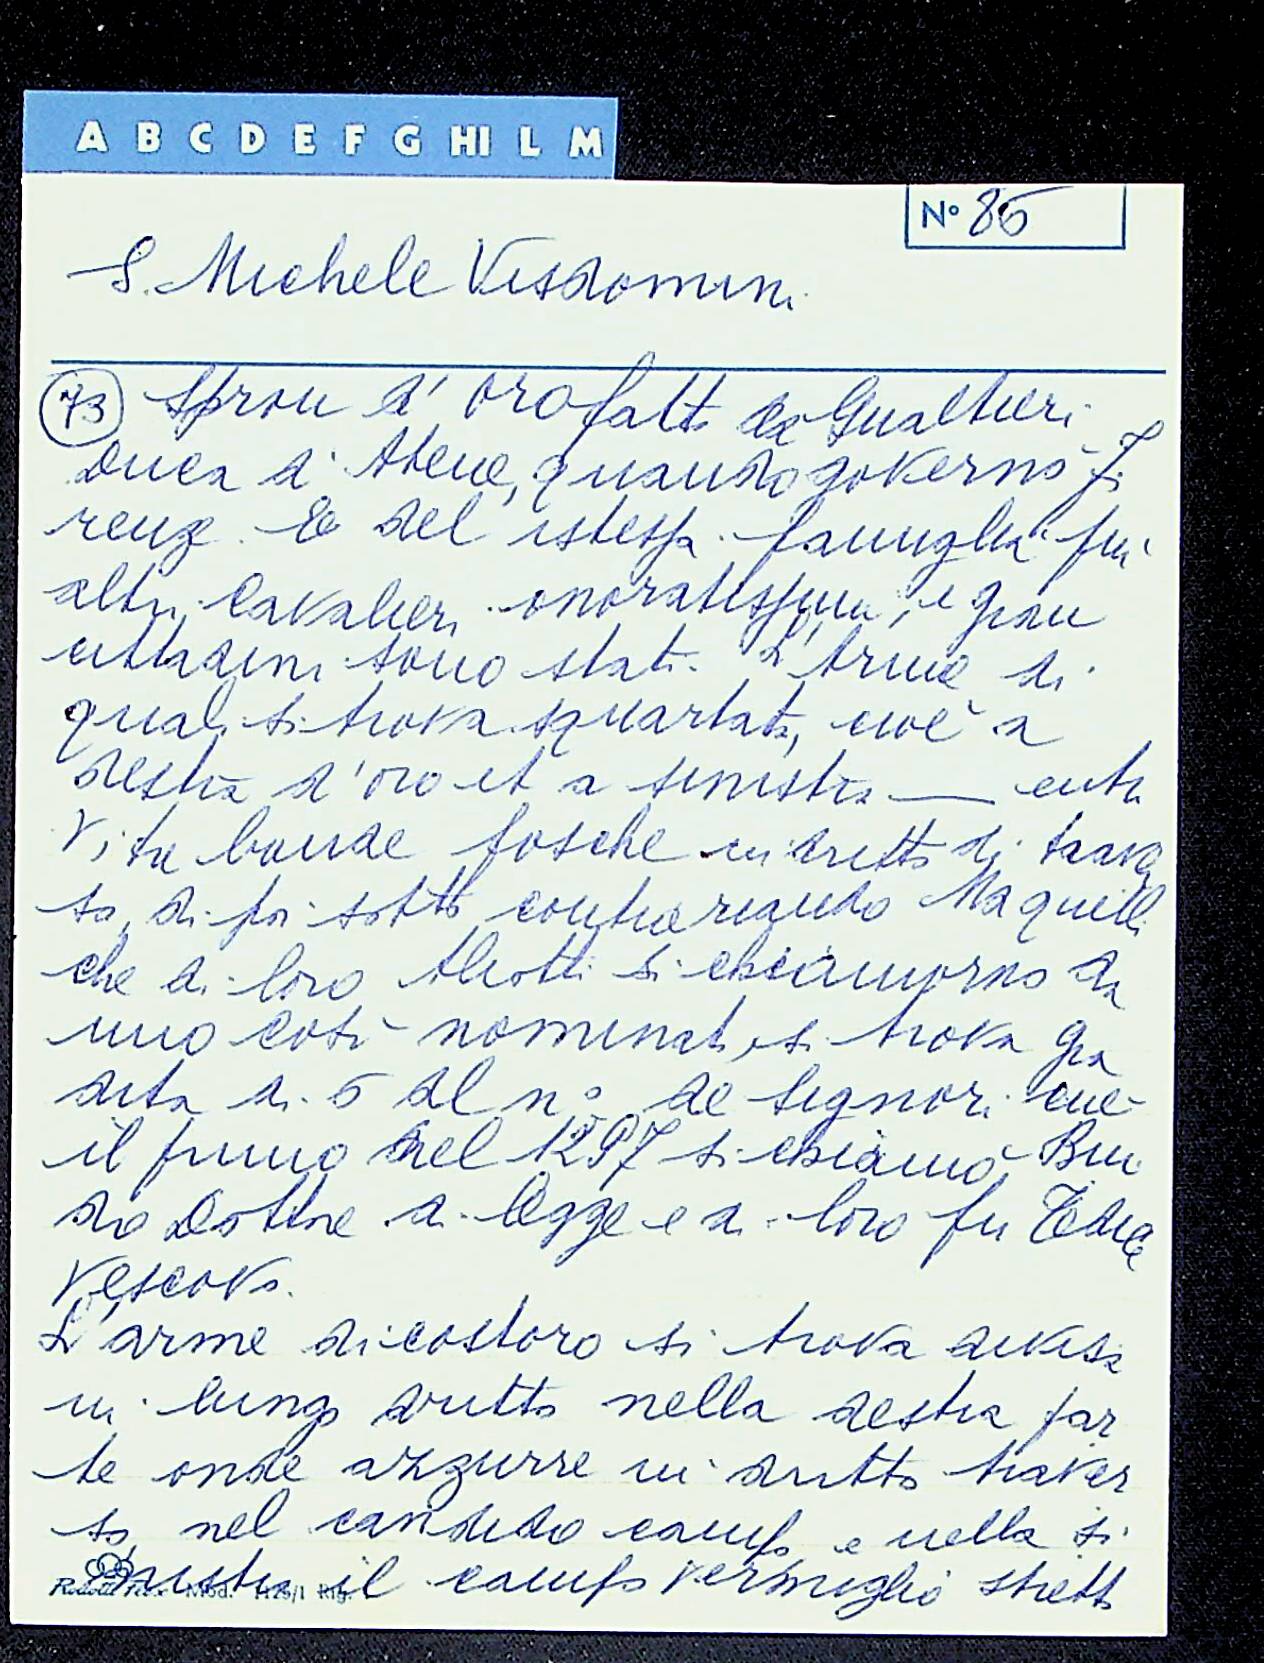 A B C D E F G HI L M
Nº 86
S. Michele Visdomini
73 Spron d'oro fatto da Gualtieri
Duca d'Atene, quando governò Fi
renze. E del istessa famiglia fu
altri cavalieri onoratissimi, e gran
cittadini sono stati. L'Arme di
quali si trova squartata, cioè a
destra d'oro et a sinistra — entro
vi tre bande fosche in dritto di traver
so, di poi sotto contrariando Ma quelli
che di loro Aliotti si chiamorno da
uno così nominato si trova gra
duta di 5 al nº de Signori cioè
il primo nel 1297 si chiamò Bin
do Dottore di legge e di loro fu Tedice
vescovo.
L'arme di costoro si trova divisa
in lungo dritto nella destra par
te onde azzurre in dritto traver
so, nel candido campo e nella si
nistra il campo vermiglio stretto
Mod. 1125/1 Rig.